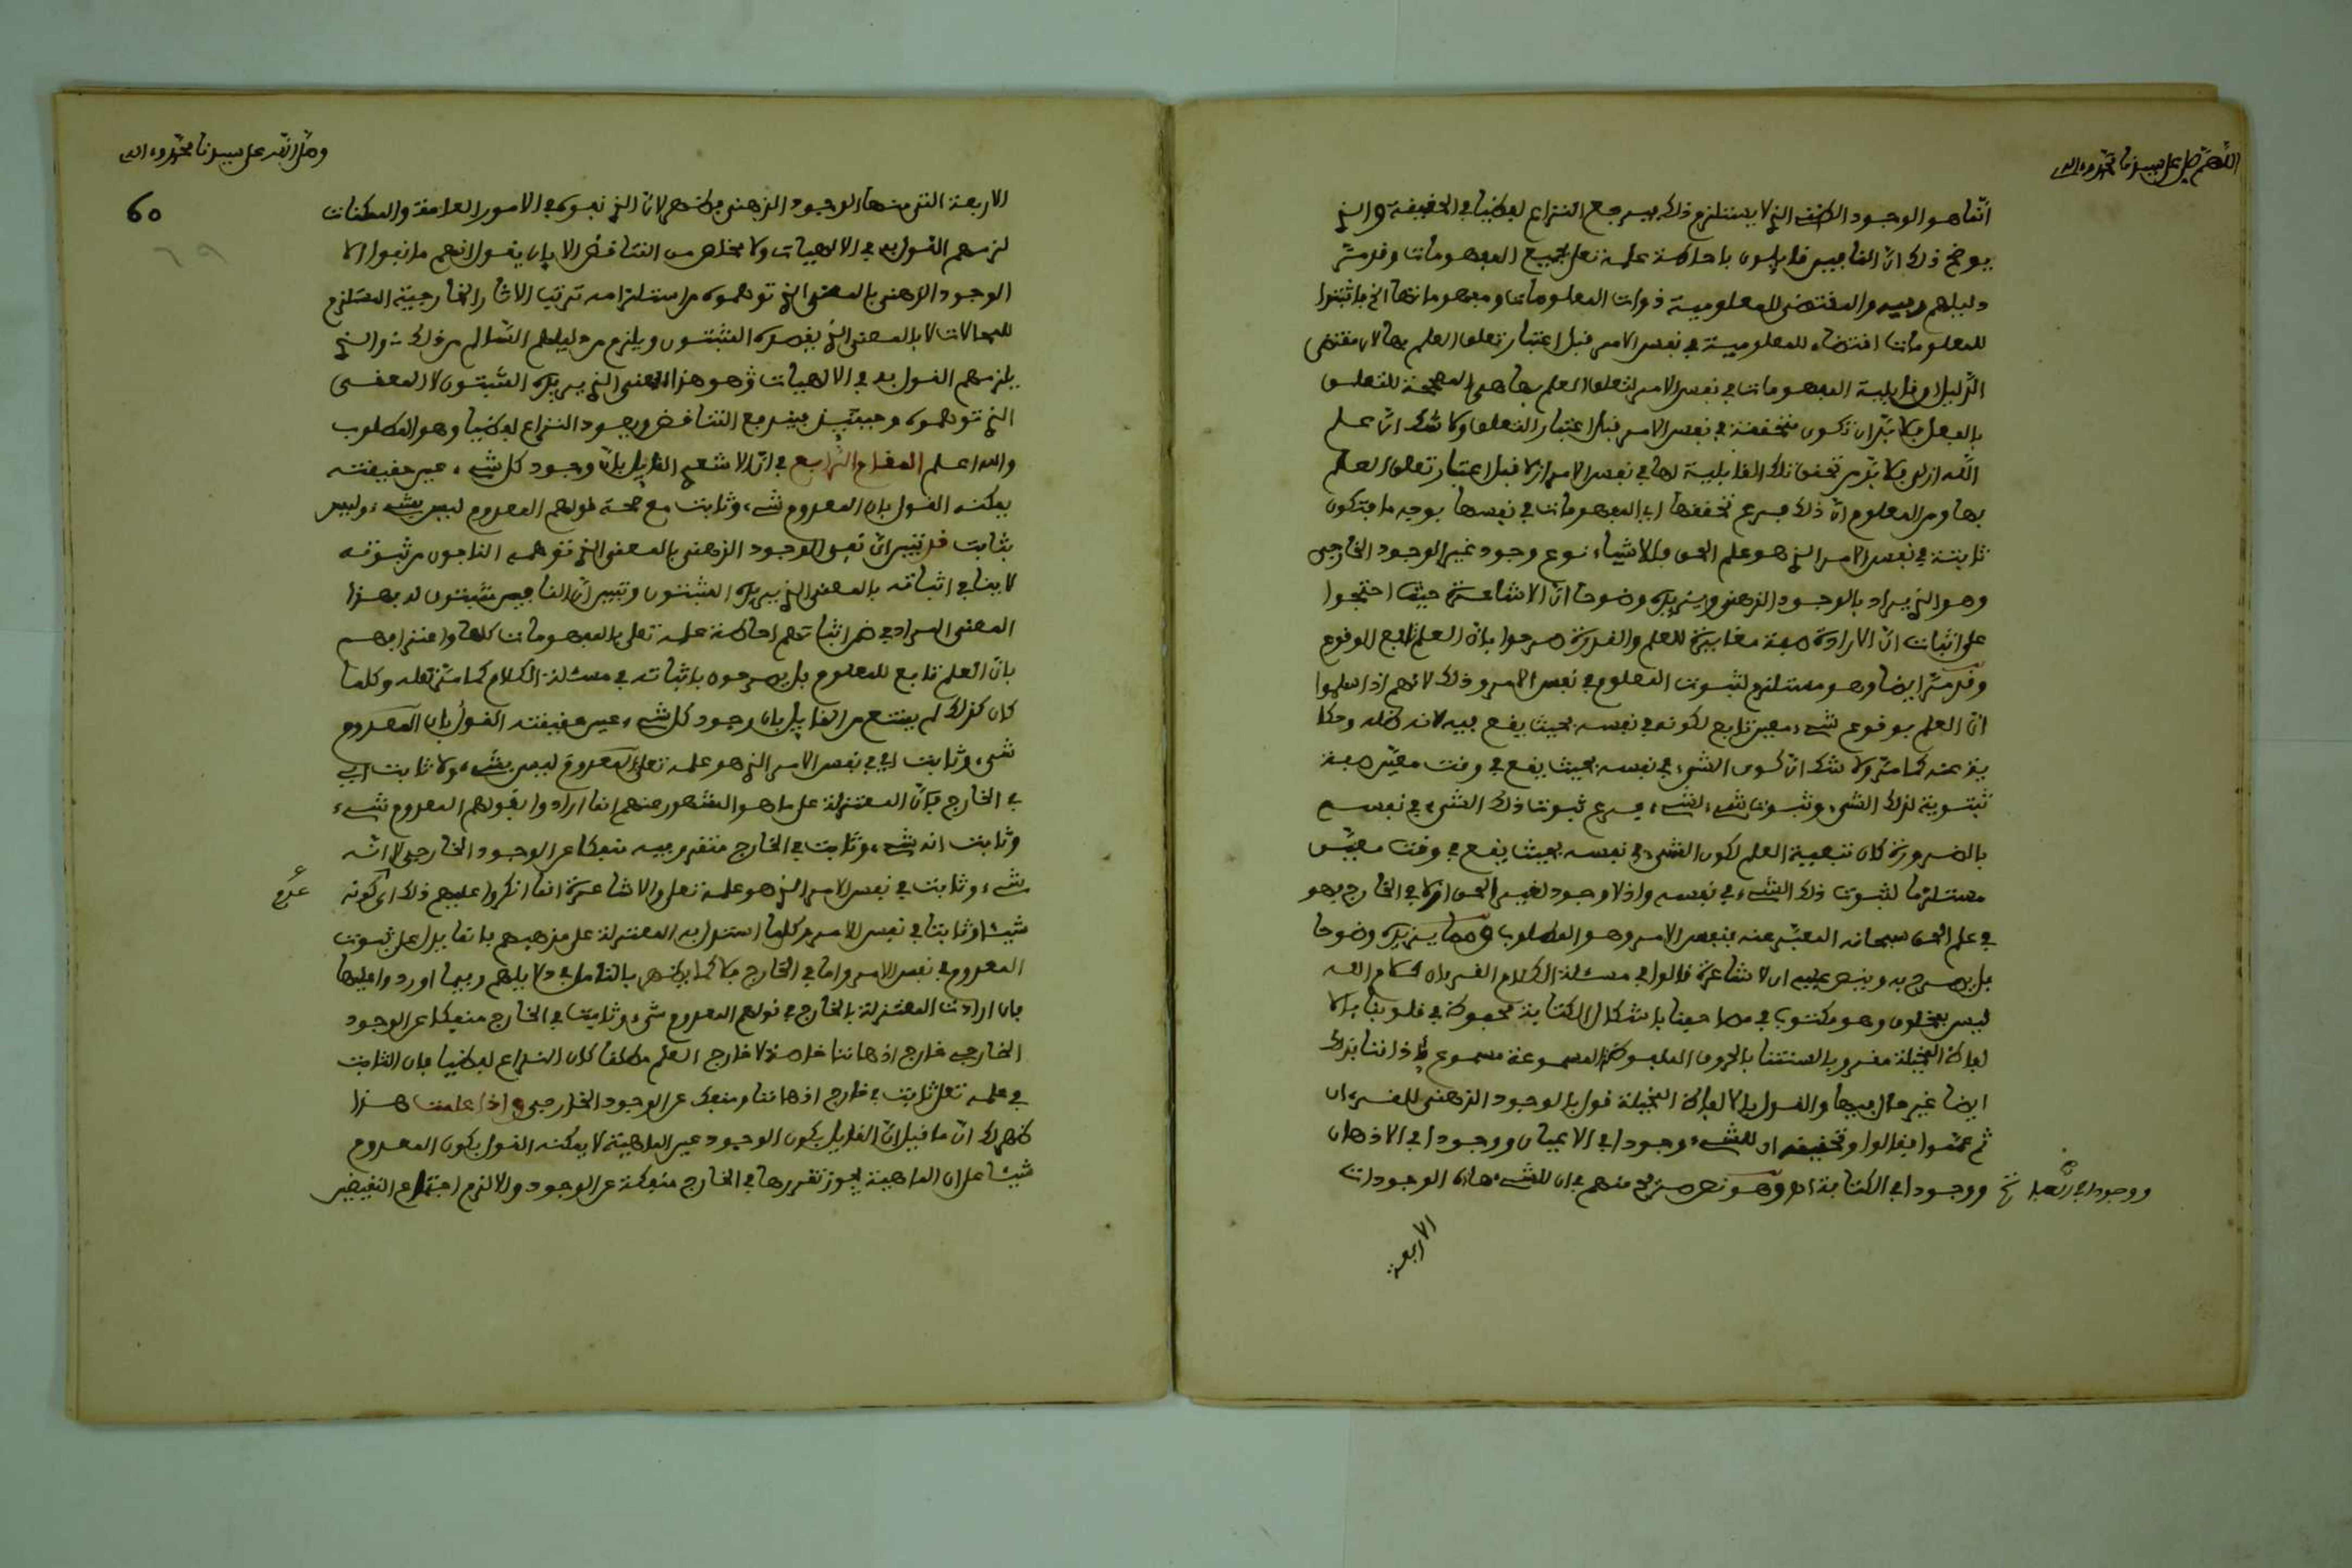 اللهم صل على سيدنا محمد وءاله
انما هو الوجود الظني الذي لا يستلزم ذلك فيرجع النزاع لفظيا في الحقيقة والذي
يوضح ذلك ان النافين قايلون باحاطة علمه تعلى بجميع المفهومات وقد مر
دليلهم فيه والمقتضى للمعلومية ذوات المعلومات ومفهوماتها الخ فاثبتوا
للمعلومات اقتضاء للمعلومية في نفس الامر قبل اعتبار تعلق العلم بها لان مقتضى
الدليل ان قابلية المفهومات في نفس الامر لتعلق العلم بها هي المصححة للتعلق
بالفعل فلا بد ان تكون متحققة في نفس الامر قبل اعتبار التعلق ولا شك ان علم
الله ازلي فلا بد من تحقق تلك القابلية لها في نفس الامر ازلا قبل اعتبار تعلق العلم
بها ومن المعلوم ان ذلك فرع تحققها اي المفهومات في نفسها بوجه ما فتكون
ثابتة في نفس الامر الذي هو علم الحق فللاشياء نوع وجود غير الوجود الخارجي
وهو الذي يراد بالوجود الذهني ويزيده وضوحا ان الاشاعرة حيث احتجوا
على اثبات ان الارادة صفة مغايرة للعلم والقدرة صرحوا بان العلم تابع للوقوع
وقد مر ايضا وهو مستلزم لثبوت المعلوم في نفس الامر وذلك لانهم اذا سلموا
ان العلم بوقوع شيء معين تابع لكونه في نفسه بحيث يقع فيه لانه ظله وحكا
ية عنه كما مر ولا شك ان كون الشيء في نفسه بحيث يقع في وقت معين صفة
ثبوتية لذلك الشيء وثبوت شيء لشيء فرع ثبوت ذلك الشيء في نفسه
بالضرورة كان تبعية العلم لكون الشيء في نفسه بحيث يقع في وقت معين
مستلزما لثبوت ذلك الشيء في نفسه واذ لا وجود لغير الحق ازلا في الخارج فهو
في علم الحق سبحانه المعبر عنه بنفس الامر وهو المطلوب ومما يزيده وضوحا
بل يصرح به وينص عليه ان الاشاعرة قالوا في مسئلة الكلام القرءان كلام الله
ليس بمخلوق وهو مكتوب في مصاحفنا باشكال الكتابة محفوظ في قلوبنا بالا
لفاظ المخيلة مقروء بالسنتنا بالحروف الملفوظة المسموعة مسموع بأذاننا بذلك
ايضا غير حال فيها والقول بالالفاظ المخيلة قول بالوجود الذهني للقرءان
ثم عمموا فقالوا وتحقيقه ان للشيء وجودا في الاعيان ووجودا في الاذهان
ووجودا في العبا رة
ووجودا في الكتابة اه وهو نص صريح منهم في ان للشيء هاذه الوجودات
الاربعة
وصلى الله على سيدنا محمد وءاله
60
الاربعة التي منها الوجود الذهني فظهر لان الذي نفوه في الامور العامة والممكنات
لزمهم القول به في الالهيات ولا مخلص من التناقض الا بان يقول انهم ما نفوا الا
الوجود الذهني بالمعنى الذي توهموه من استلزامه ترتب الاثار الخارجية المستلزم
للمحالات لا بالمعنى الذي يقصده المثبتون ويلزم من دليلهم السالم من ذلك والذي
يلزمهم القول به في الالهيات وهو هذا المعنى الذي يريده المثبتون لا المعنى
الذي توهموه وحينئذ يندفع التناقض ويعود النزاع لفظيا وهو المطلوب
والله اعلم المقام الرابع في ان الاشعري القايل بان وجود كل شيء عين حقيقته
يمكنه القول بان المعدوم شيء وثابت مع صحة قولهم المعدوم ليس بشيء وليس
بثابت قد تبين ان نفي الوجود الذهني بالمعنى الذي توهمه النافون من ثبوته
لا ينافي اثباته بالمعنى الذي يريده المثبتون وتبين ان النافين مثبتون له بهذا
المعنى المراد في ضمن اثباتهم احاطة علمه تعلى بالمفهومات كلها واعترافهم
بان العلم تابع للمعلوم بل يصرحون باثباته في مسئلة الكلام كما مر نقله وكلما
كان كذلك لم يمتنع من القايل بان وجود كل شيء عين حقيقته القول بان المعدوم
شيء وثابت اي في نفس الامر الذي هو علمه تعلى والمعدوم ليس بشيء ولا ثابت اي
في الخارج فان المعتزلة على ما هو المشهور عنهم انما ارادوا بقولهم المعدوم شيء
وثابت انه شيء وثابت في الخارج متقرر فيه منفكا عن الوجود الخارجي لا انه
شيء وثابت في نفس الامر الذي هو علمه تعلى والاشاعرة انما انكروا عليهم ذلك اي كونه
شيئا وثابتا في نفس الامر وكلما استدل به المعتزلة على مذهبهم فانما يدل على ثبوت
المعدوم في نفس الامر واما في الخارج فلا كما يظهر بالتامل في دلايلهم وفيما اورد عليها
فان ارادت المعتزلة بالخارج في قولهم المعدوم شيء وثابت في الخارج منفكا عن الوجود
الخارجي خارج اذهاننا خاصة لا خارج العلم مطلقا كان النزاع لفظيا فان الثابت
في علمه تعلى ثابت في خارج اذهاننا ومنفك عن الوجود الخارجي واذا علمت هذا
ظهر لك ان ما قيل ان القايل بكون الوجود عين الماهية لا يمكنه القول بكون المعدوم
شيئا على ان الماهية يجوز تقررها في الخارج منفكة عن الوجود والا لزم اجتماع النقيضين